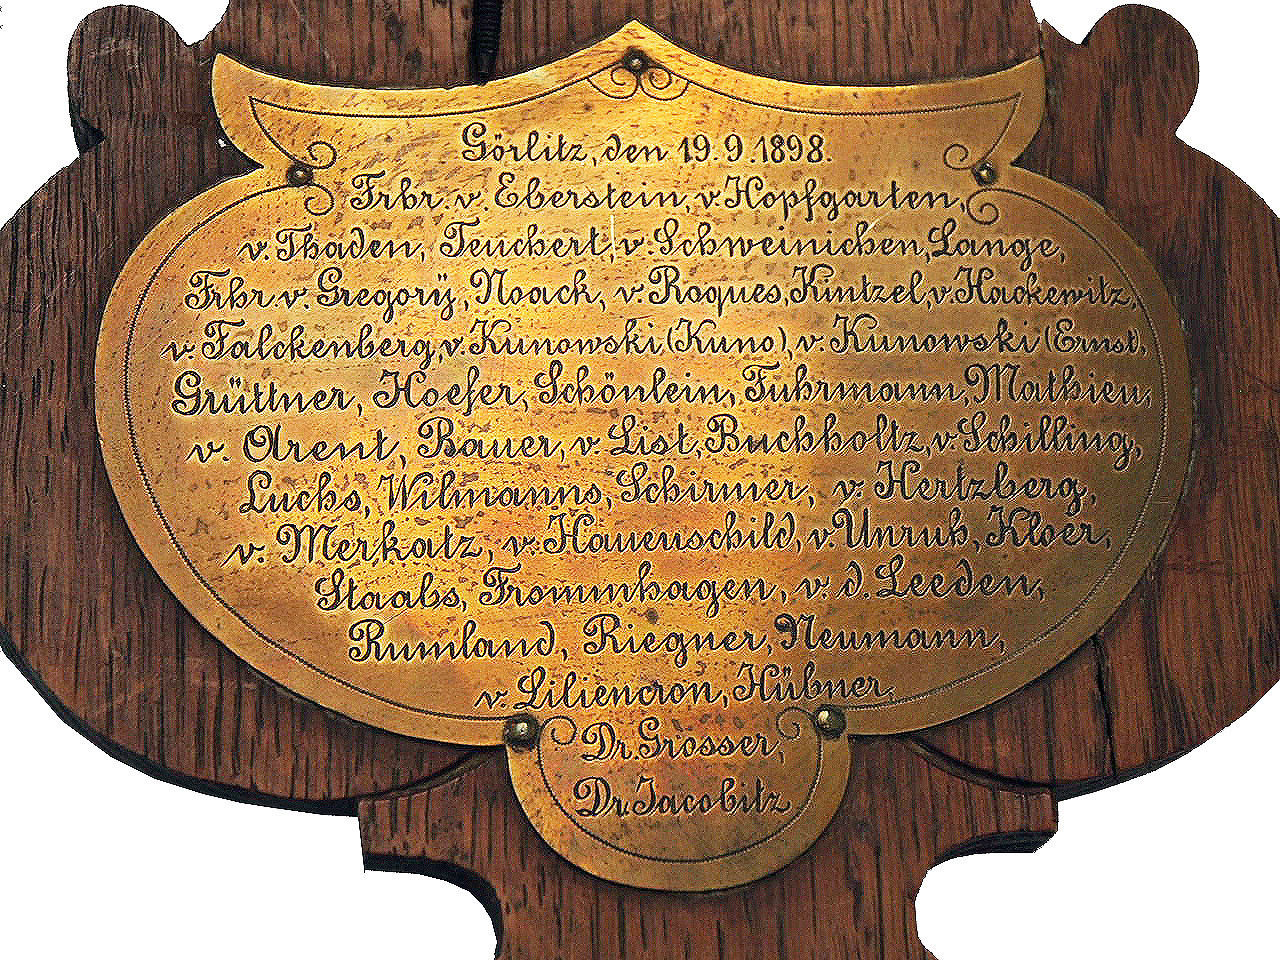 Görlitz, den 19.9.1898.
Frhr. v. Eberstein, v. Hopfgarten,
v. Thaden, Teuchert, v. Schweinichen, Lange,
Frhr. v. Gregorÿ, Noack, v. Roques, Kintzel, v. Hackewitz,
v. Falckenberg, v. Kunowski (Kuno), v. Kunowski (Ernst),
Grüttner, Hoefer, Schönlein, Fuhrmann, Mathieu,
v. Arent, Bauer, v. List, Buchholtz, v. Schilling,
Luchs, Wilmanns, Schirmer, v. Hertzberg,
v. Merkatz, v. Hauenschild, v. Unruh, Kloer,
Staabs, Frommhagen, v. d. Leeden,
Rumland, Riegner, Neumann,
v. Liliencron, Hübner.
Dr. Grosser,
Dr. Jacobitz